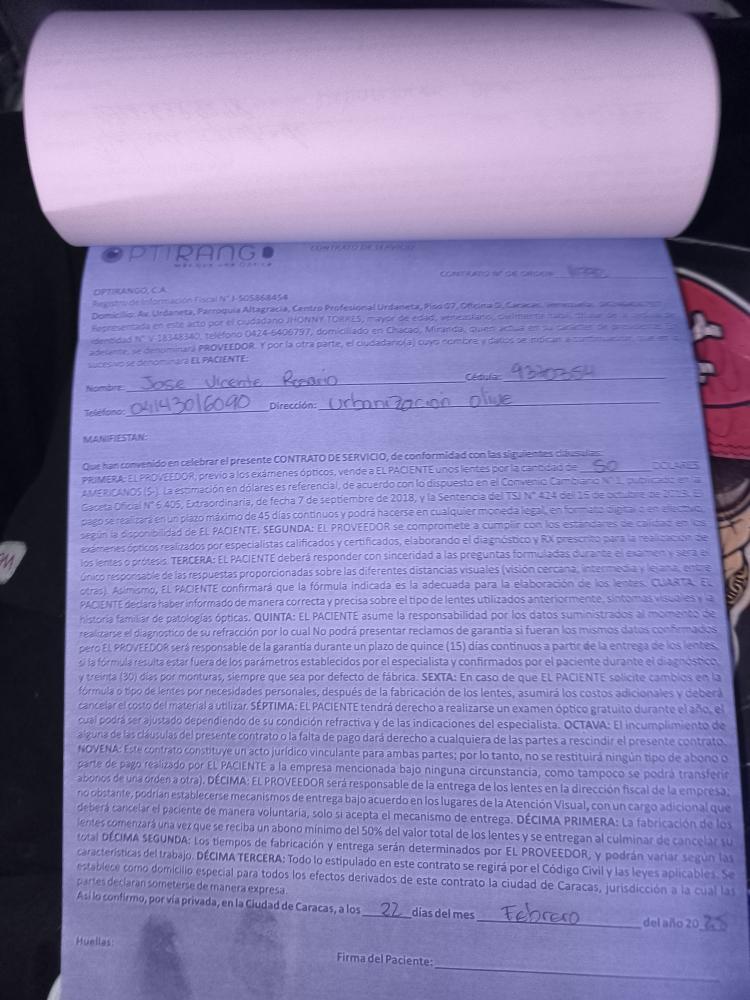 OPTIRANGO
CONTRATO DE SERVICIO
CONTRATO N° DE ORDEN:
OPTIRANGO, C.A.
Registro de Información Fiscal N° J-505868454
Domicilio: Av. Urdaneta, Parroquia Altagracia, Centro Profesional Urdaneta, Piso 07, Oficina D, Caracas, Venezuela.
Representada en este acto por el ciudadano JHONNY TORRES, mayor de edad, venezolano, civilmente hábil, titular de la
identidad N° V-18348340, teléfono 0424-6406797, domiciliado en Chacao, Miranda, quien actúa en su carácter de
adelante, se denominará PROVEEDOR. Y por la otra parte, el ciudadano(a) cuyo nombre y datos se indican a continuación, que en lo
sucesivo se denominará EL PACIENTE:
Nombre: Jose Vicente Rosario Cédula: 9370354
Teléfono: 04143016090 Dirección: Urbanización olive
MANIFIESTAN:
Que han convenido en celebrar el presente CONTRATO DE SERVICIO, de conformidad con las siguientes cláusulas:
PRIMERA: EL PROVEEDOR, previo a los exámenes ópticos, vende a EL PACIENTE unos lentes por la cantidad de 50 DÓLARES
AMERICANOS ($-). La estimación en dólares es referencial, de acuerdo con lo dispuesto en el Convenio Cambiario N° 1, publicado en la
Gaceta Oficial N° 6.405, Extraordinaria, de fecha 7 de septiembre de 2018, y la Sentencia del TSJ N° 424 del 16 de octubre de
pago se realizará en un plazo máximo de 45 días continuos y podrá hacerse en cualquier moneda legal, en formato digital o en efectivo,
según la disponibilidad de EL PACIENTE. SEGUNDA: EL PROVEEDOR se compromete a cumplir con los estándares de calidad en los
exámenes ópticos realizados por especialistas calificados y certificados, elaborando el diagnóstico y RX prescrito para la realización de
los lentes o prótesis. TERCERA: EL PACIENTE deberá responder con sinceridad a las preguntas formuladas durante el examen y será el
único responsable de las respuestas proporcionadas sobre las diferentes distancias visuales (visión cercana, intermedia y lejana, entre
otras). Asimismo, EL PACIENTE confirmará que la fórmula indicada es la adecuada para la elaboración de los lentes. CUARTA. EL
PACIENTE declara haber informado de manera correcta y precisa sobre el tipo de lentes utilizados anteriormente, síntomas visuales y la
historia familiar de patologías ópticas. QUINTA: EL PACIENTE asume la responsabilidad por los datos suministrados al momento de
realizarse el diagnostico de su refracción por lo cual No podrá presentar reclamos de garantía si fueran los mismos datos confirmados
pero EL PROVEEDOR será responsable de la garantía durante un plazo de quince (15) días continuos a partir de la entrega de los lentes,
si la fórmula resulta estar fuera de los parámetros establecidos por el especialista y confirmados por el paciente durante el diagnóstico,
y treinta (30) días por monturas, siempre que sea por defecto de fábrica. SEXTA: En caso de que EL PACIENTE solicite cambios en la
fórmula o tipo de lentes por necesidades personales, después de la fabricación de los lentes, asumirá los costos adicionales y deberá
cancelar el costo del material a utilizar. SÉPTIMA: EL PACIENTE tendrá derecho a realizarse un examen óptico gratuito durante el año, el
cual podrá ser ajustado dependiendo de su condición refractiva y de las indicaciones del especialista. OCTAVA: El incumplimiento de
alguna de las cláusulas del presente contrato o la falta de pago dará derecho a cualquiera de las partes a rescindir el presente contrato.
NOVENA: Este contrato constituye un acto jurídico vinculante para ambas partes; por lo tanto, no se restituirá ningún tipo de abono o
parte de pago realizado por EL PACIENTE a la empresa mencionada bajo ninguna circunstancia, como tampoco se podrá transferir
abonos de una orden a otra). DÉCIMA: EL PROVEEDOR será responsable de la entrega de los lentes en la dirección fiscal de la empresa,
no obstante, podrían establecerse mecanismos de entrega bajo acuerdo en los lugares de la Atención Visual, con un cargo adicional que
deberá cancelar el paciente de manera voluntaria, solo si acepta el mecanismo de entrega. DÉCIMA PRIMERA: La fabricación de los
lentes comenzará una vez que se reciba un abono mínimo del 50% del valor total de los lentes y se entregan al culminar de cancelar su
total DÉCIMA SEGUNDA: Los tiempos de fabricación y entrega serán determinados por EL PROVEEDOR, y podrán variar según las
características del trabajo. DÉCIMA TERCERA: Todo lo estipulado en este contrato se regirá por el Código Civil y las leyes aplicables. Se
establece como domicilio especial para todos los efectos derivados de este contrato la ciudad de Caracas, jurisdicción a la cual las
partes declaran someterse de manera expresa.
Así lo confirmo, por vía privada, en la Ciudad de Caracas, a los 22 días del mes Febrero del año 2025
Huellas:
Firma del Paciente: